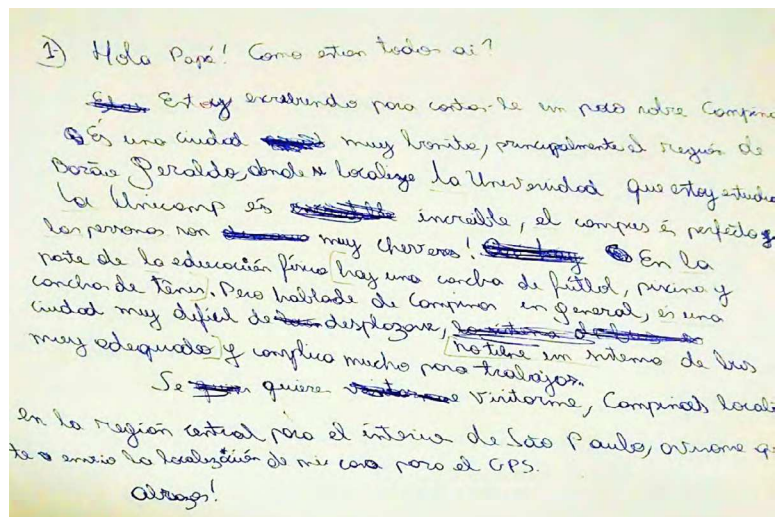 1-) Hola Papá! Como estan todos ai?
Estoy escribiendo para contar-le un poco sobre Campina
És una ciudad muy bonita, principalmente el región de
Barão Geraldo, donde se localiza la Universidad que estoy estudia
La Unicamp és increíble, el campus és perfecto y
las personas son muy cheveres! En la
parte de la educación física hay una cancha de fútbol, piscina y
canchas de tênis. Pero hablade de Campinas en general, és una
ciudad muy dificil de desplazarse,
no tiene un sistema de bus
muy adequado y complica mucho para trabajar.
Se quiere visitarme, Campinas locali
en la región central para el interior de São Paulo, avisame q
te envio la localización de mi casa para el GPS.
abrazos!